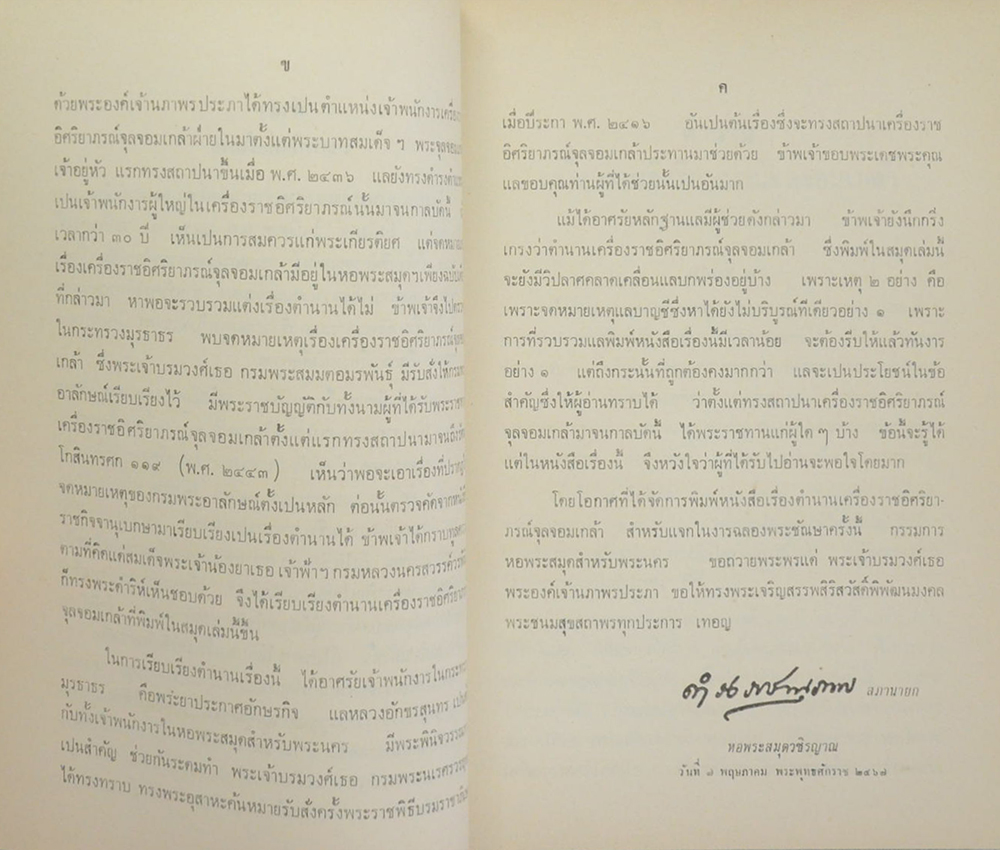 ข
ด้วยพระองค์เจ้านภาพรประภาได้ทรงเปน ตำแหน่งเจ้าพนักงารเครื่อง
อิศริยาภรณ์จุลจอมเกล้าฝ่ายในมาตั้งแต่พระบาทสมเด็จ ฯ พระจุลจอม
เจ้าอยู่หัว แรกทรงสถาปนาขึ้นเมื่อ พ.ศ. ๒๔๓๖ แลยังทรงดำรงตำแหน่ง
เปนเจ้าพนักงารผู้ใหญ่ในเครื่องราชอิศริยาภรณ์นั้นมาจนกาลบัดนี้
เวลากว่า ๓๐ ปี เห็นเปนการสมควรแก่พระเกียรติยศ แต่จดหมาย
เรื่องเครื่องราชอิศริยาภรณ์จุลจอมเกล้ามีอยู่ในหอพระสมุดฯเพียงฉบับ
ที่กล่าวมา หาพอจะรวบรวมแต่งเรื่องตำนานได้ไม่ ข้าพเจ้าจึงไป
ในกระทรวงมุรธาธร พบจดหมายเหตุเรื่องเครื่องราชอิศริยาภรณ์จุลจอม
เกล้า ซึ่งพระเจ้าบรมวงศ์เธอ กรมพระสมมตอมรพันธุ์ มีรับสั่งให้กรมพระ
อาลักษณ์เรียบเรียงไว้ มีพระราชบัญญัติกับทั้งนามผู้ที่ได้รับพระราชทาน
เครื่องราชอิศริยาภรณ์จุลจอมเกล้าตั้งแต่แรกทรงสถาปนามาจนถึงรัตน
โกสินทรศก ๑๑๙ (พ.ศ. ๒๔๔๓) เห็นว่าพอจะเอาเรื่องที่ปรากฏ
จดหมายเหตุของกรมพระอาลักษณ์ตั้งเปนหลัก ต่อนั้นตรวจคัดจากหนังสือ
ราชกิจจานุเบกษามาเรียบเรียงเปนเรื่องตำนานได้ ข้าพเจ้าได้กราบทูล
ตามที่คิดแด่สมเด็จพระเจ้าน้องยาเธอ เจ้าฟ้าฯ กรมหลวงนครสวรรค์วรพินิต
ก็ทรงพระดำริห์เห็นชอบด้วย จึงได้เรียบเรียงตำนานเครื่องราชอิศริยาภรณ์
จุลจอมเกล้าที่พิมพ์ในสมุดเล่มนี้ขึ้น
ในการเรียบเรียงตำนานเรื่องนี้ ได้อาศรัยเจ้าพนักงารในกระทรวง
มุรธาธร คือพระยาประกาศอักษรกิจ แลหลวงอักขรสุนทร เปนต้น
กับทั้งเจ้าพนักงารในหอพระสมุดสำหรับพระนคร มีพระพินิจวรรณการ
เปนสำคัญ ช่วยกันระดมทำ พระเจ้าบรมวงศ์เธอ กรมพระนเรศรวรฤทธิ์
ได้ทรงทราบ ทรงพระอุสาหะค้นหมายรับสั่งครั้งพระราชพิธีบรมราชาภิเษก
ค
เมื่อปีระกา พ.ศ. ๒๔๑๖ อันเปนต้นเรื่องซึ่งจะทรงสถาปนาเครื่องราช
อิศริยาภรณ์จุลจอมเกล้าประทานมาช่วยด้วย ข้าพเจ้าขอบพระเดชพระคุณ
แลขอบคุณท่านผู้ที่ได้ช่วยนั้นเปนอันมาก
แม้ได้อาศรัยหลักฐานแลมีผู้ช่วยดังกล่าวมา ข้าพเจ้ายังนึกกริ่ง
เกรงว่าตำนานเครื่องราชอิศริยาภรณ์จุลจอมเกล้า ซึ่งพิมพ์ในสมุดเล่มนี้
จะยังมีวิปลาศคลาดเคลื่อนแลบกพร่องอยู่บ้าง เพราะเหตุ ๒ อย่าง คือ
เพราะจดหมายเหตุแลบาญชีซึ่งหาได้ยังไม่บริบูรณ์ทีเดียวอย่าง ๑ เพราะ
การที่รวบรวมแลพิมพ์หนังสือเรื่องนี้มีเวลาน้อย จะต้องรีบให้แล้วทันงาร
อย่าง ๑ แต่ถึงกระนั้นที่ถูกต้องคงมากกว่า แลจะเปนประโยชน์ในข้อ
สำคัญซึ่งให้ผู้อ่านทราบได้ ว่าตั้งแต่ทรงสถาปนาเครื่องราชอิศริยาภรณ์
จุลจอมเกล้ามาจนกาลบัดนี้ ได้พระราชทานแก่ผู้ใด ๆ บ้าง ข้อนี้จะรู้ได้
แต่ในหนังสือเรื่องนี้ จึงหวังใจว่าผู้ที่ได้รับไปอ่านจะพอใจโดยมาก
โดยโอกาศที่ได้จัดการพิมพ์หนังสือเรื่องตำนานเครื่องราชอิศริยา-
ภรณ์จุลจอมเกล้า สำหรับแจกในงารฉลองพระชัณษาครั้งนี้ กรรมการ
หอพระสมุดสำหรับพระนคร ขอถวายพระพรแด่ พระเจ้าบรมวงศ์เธอ
พระองค์เจ้านภาพรประภา ขอให้ทรงพระเจริญสรรพสิริสวัสดิ์พิพัฒนมงคล
พระชนมสุขสถาพรทุกประการ เทอญ
ดำรงราชานุภาพ สภานายก
หอพระสมุดวชิรญาณ
วันที่ ๗ พฤษภาคม พระพุทธศักราช ๒๔๖๗